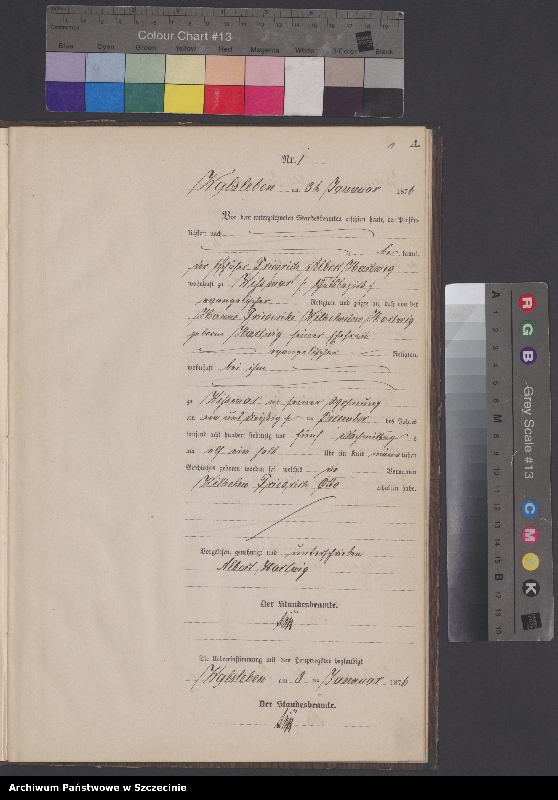 Colour Chart #13
Blue Cyan Green Yellow Red Magenta White 3/Color Black
Nr. 1
am Januar 1876
Vor dem unterzeichneten Standesbeamten erschien heute, der Persön-
lichkeit nach
kannt,
der Friedrich Albert Hartwig
wohnhaft zu
evangelischer Religion, und zeigte an, daß von der
Friederike Wilhelmine Hartwig
geborene Hartwig seiner Ehefrau
evangelischer Religion,
wohnhaft bei ihm
zu in seiner Wohnung
am ein und dreißig ten December des Jahres
tausend acht hundert siebenzig und fünf Nachmittag s
um elf ein halb Uhr ein Kind männlichen
Geschlechts geboren worden sei, welches die Vornamen
Wilhelm Friedrich Otto
erhalten habe.
Vorgelesen, genehmigt und unterschrieben
Albert Hartwig
Der Standesbeamte.
Die Uebereinstimmung mit dem Hauptregister beglaubigt
am 3 ten Januar 1876
Der Standesbeamte.
Grey Scale #13
A 1 2 3 4 5 6 M 8 9 10 11 12 13 14 15 B 17 18 19
R G B
C M Y K
Archiwum Państwowe w Szczecinie